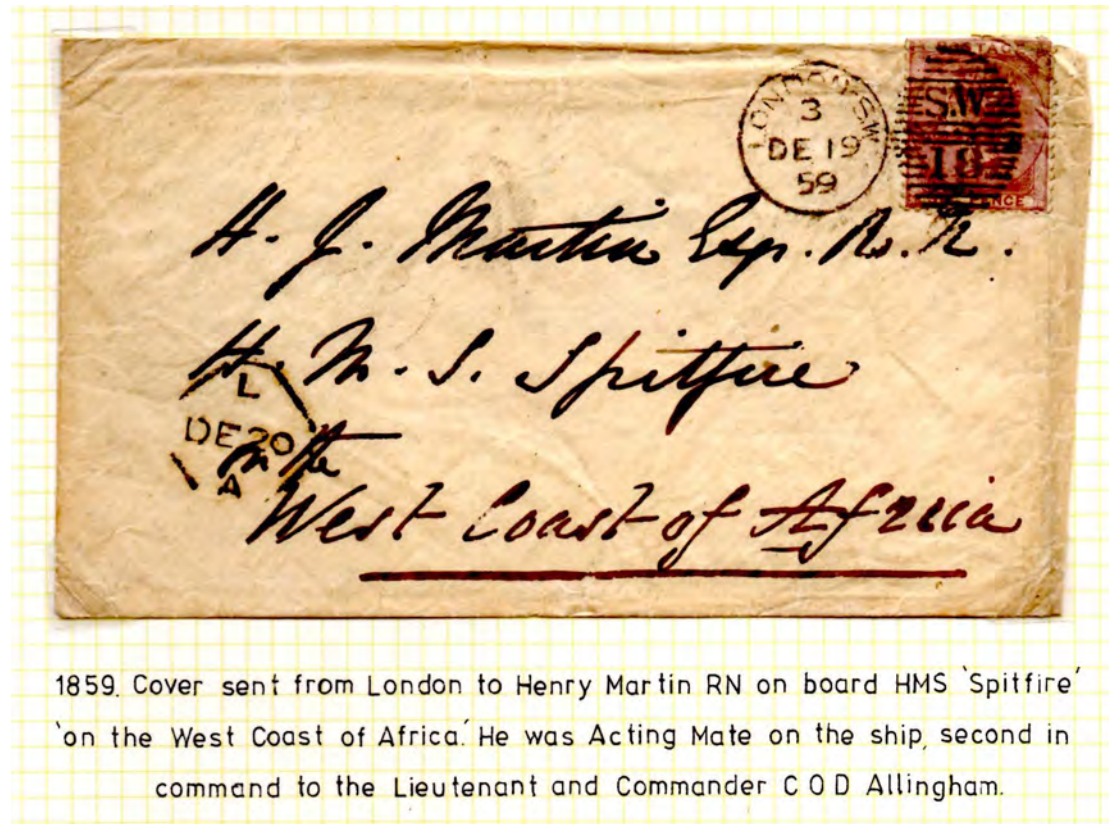 LONDON.S.W
3
DE 19
59
POSTAGE
S.W
PENCE
H. J. Martin Esqr. R. N.
H. M. S. Spitfire
L
DE 20
A
on the
West Coast of Africa
1859. Cover sent from London to Henry Martin RN on board HMS 'Spitfire'
'on the West Coast of Africa.' He was Acting Mate on the ship, second in
command to the Lieutenant and Commander C O D Allingham.